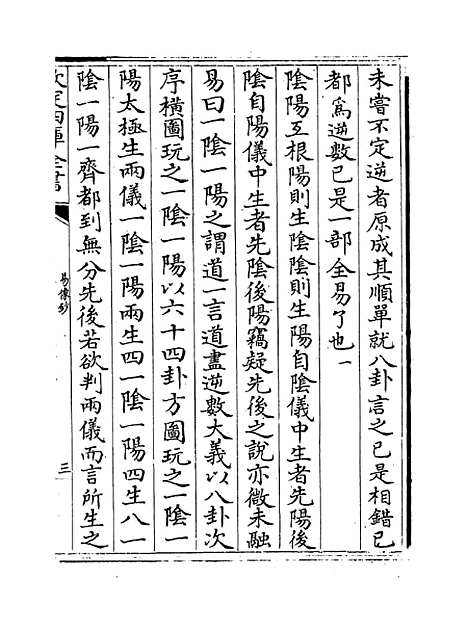 未嘗不定逆者原成其順單就八卦言之已是相錯已
都爲逆數已是一部全易了也一
陰陽互根陽則生陰陰則生陽自陰儀中生者先陽後
陰自陽儀中生者先陰後陽竊疑先後之說亦微未融
易曰一陰一陽之謂道一言道盡逆數大義以八卦次
序橫圖玩之一陰一陽以六十四卦方圖玩之一陰一
陽太極生兩儀一陰一陽兩生四一陰一陽四生八一
陰一陽一齊都到無分先後若欲判兩儀而言所生之
欽定四庫全書
易像鈔
三